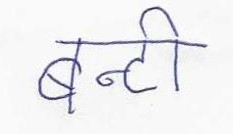 बन्टी